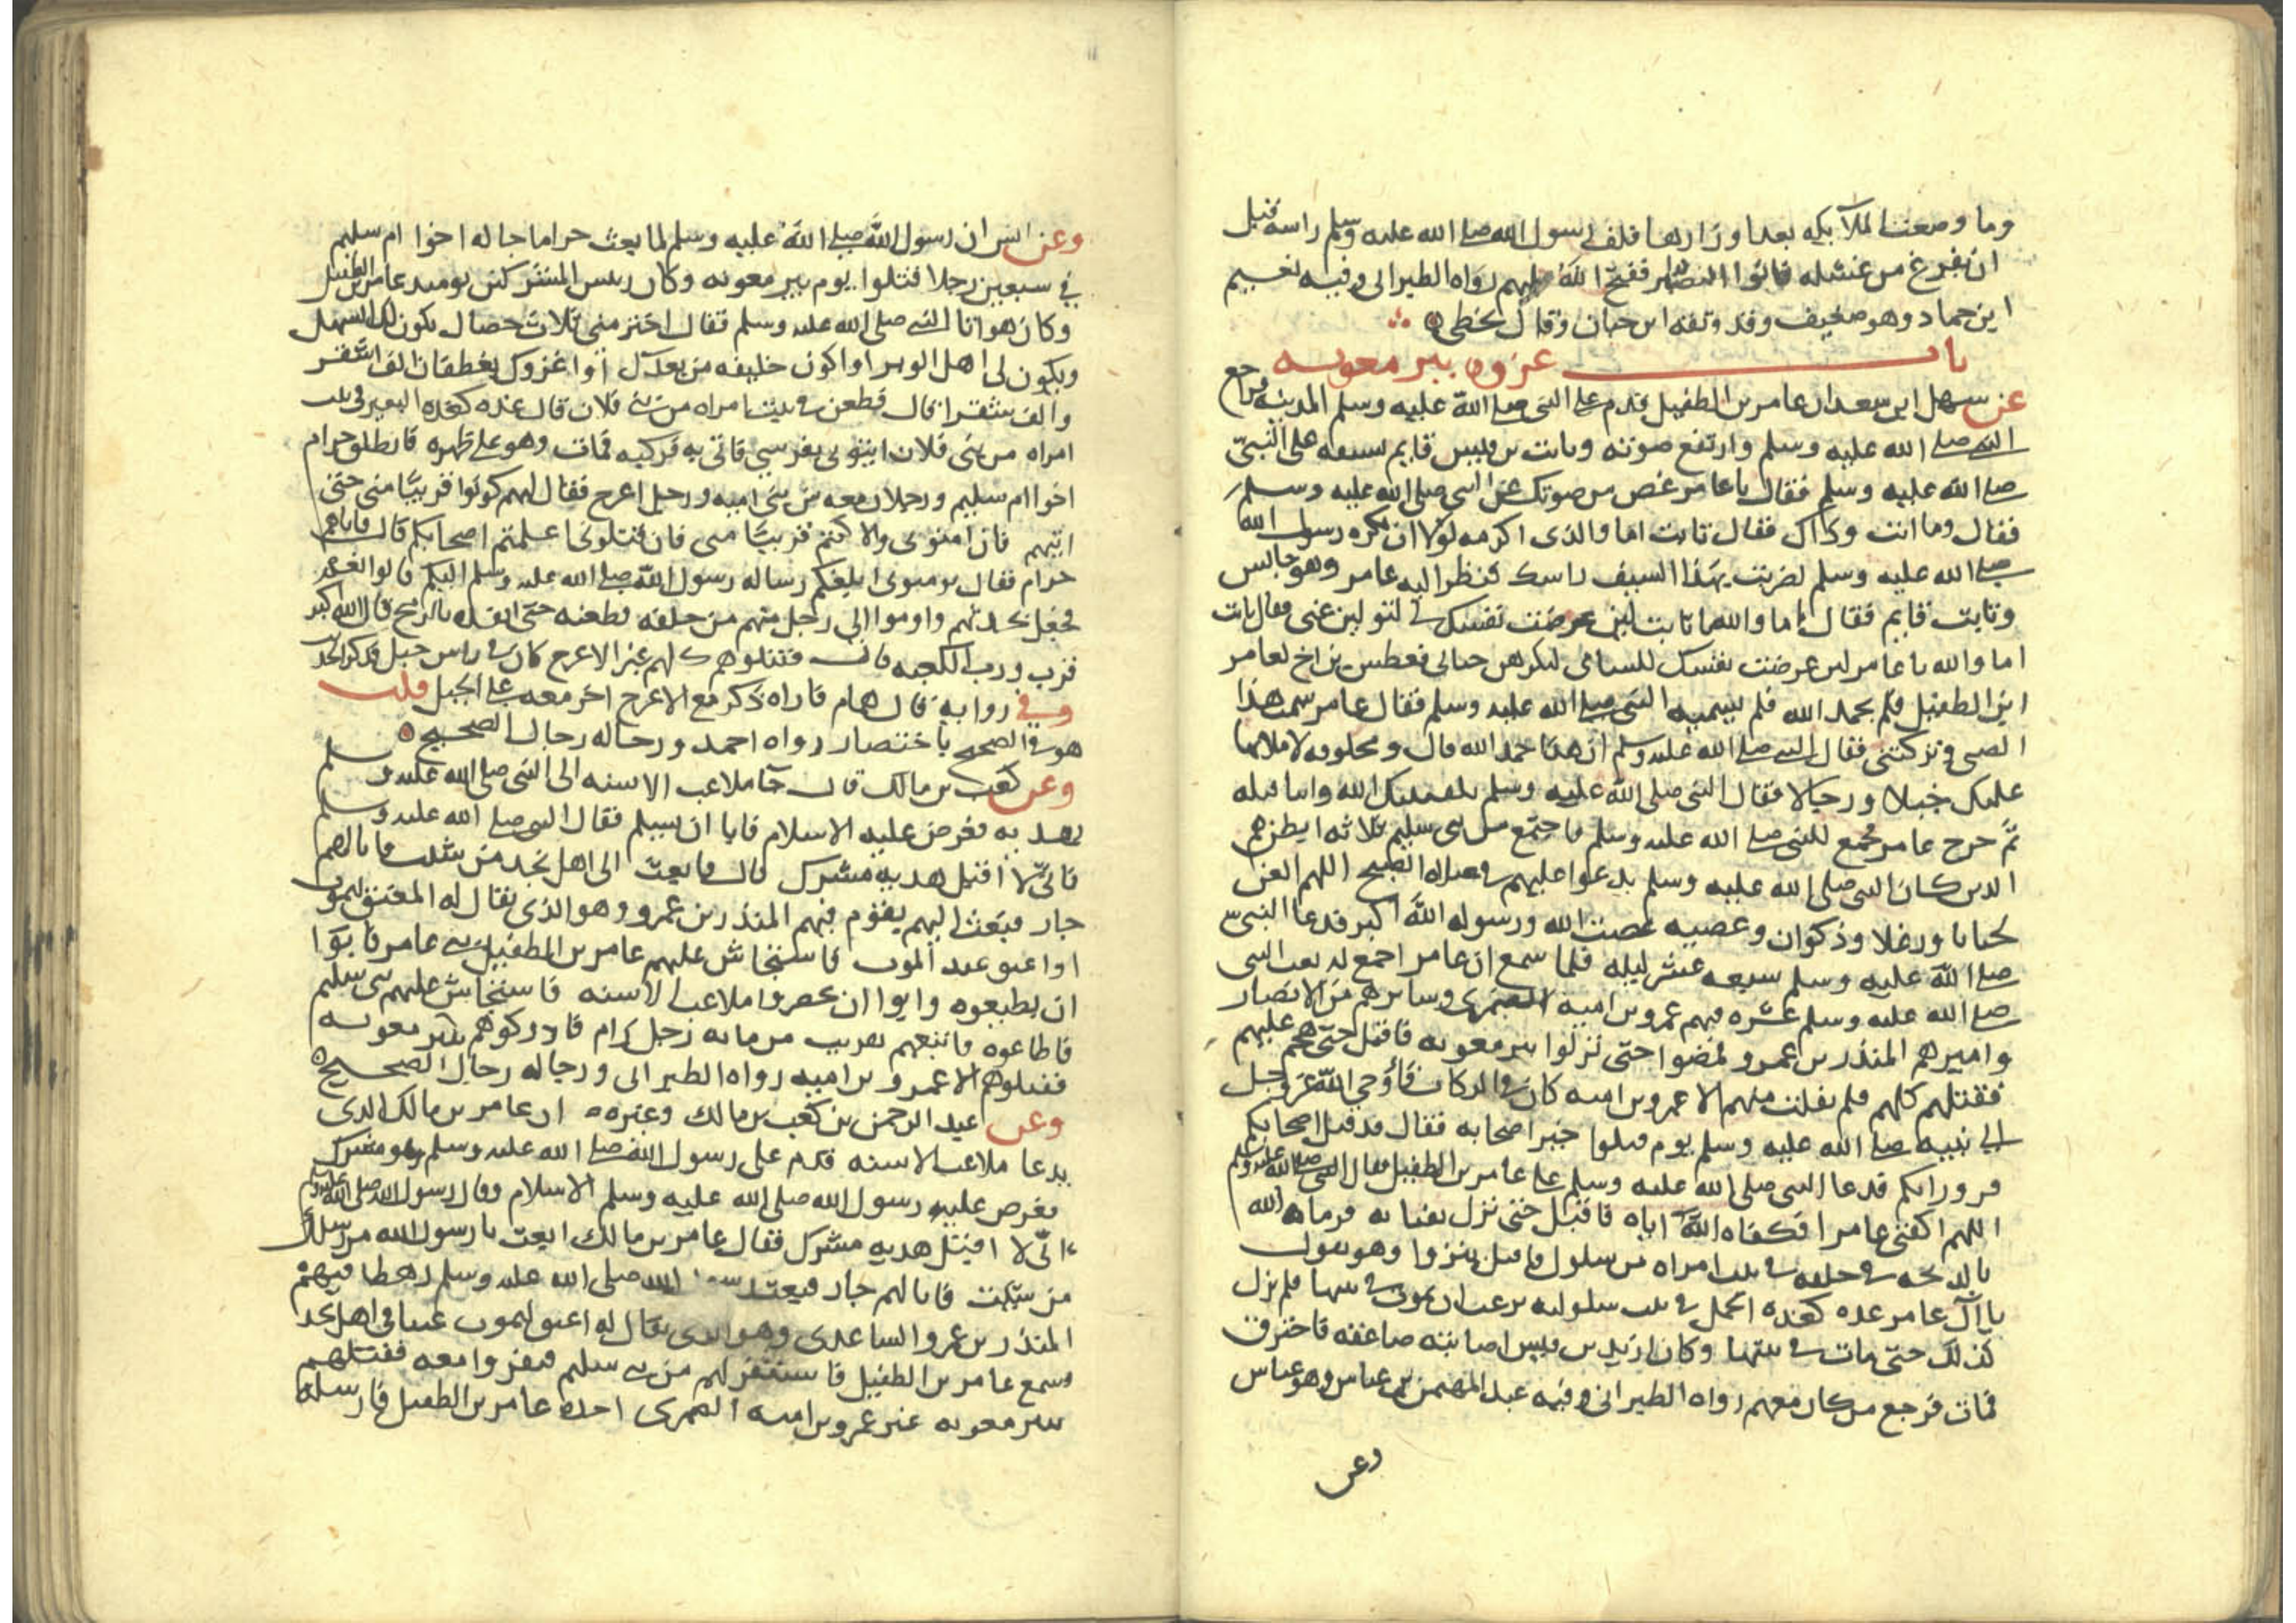 وما وضعت الملائكة بعد اوزارها فلف رسول الله صلى الله عليه وسلم راسه قبل
ان يفرغ من غسله فاتوا النضير ففتح الله عليهم رواه الطبراني وفيه نعيم
ابن حماد وهو ضعيف وقد وثقه ابن حبان وقال يخطي
باب غزوة بير معونه
عن سهل ابن سعد ان عامر بن الطفيل قدم على النبي صلى الله عليه وسلم المدينة فراجع
الله صلى الله عليه وسلم وارتفع صوته وثابت بن قيس قايم بسيفه على النبي
صلى الله عليه وسلم فقال يا عامر غض من صوتك عن النبي صلى الله عليه وسلم
فقال وما انت وذاك فقال ثابت اما والذي اكرمه لولا ان يكره رسول الله
صلى الله عليه وسلم لضربت بهذا السيف راسك فنظر اليه عامر وهو جالس
وثابت قايم فقال اما والله يا ثابت لين عرضت نفسك لي لتولين عني فقال ثابت
اما والله يا عامر لين عرضت نفسك للساني لتكرهن حياتي فعطس بن اخ لعامر
ابن الطفيل فلم يحمد الله فلم يشمته النبي صلى الله عليه وسلم فقال عامر شمت هذا
الصبي وتركتني فقال النبي صلى الله عليه وسلم ان هذا حمد الله قال ومحلوفه لاملانها
عليك خيلا ورجالا فقال النبي صلى الله عليه وسلم يكفينيك الله وابنا قيله
ثم خرج عامر فجمع للنبي صلى الله عليه وسلم فاجتمع من بني سليم ثلاثه ابطن هم
الذين كان النبي صلى الله عليه وسلم يدعوا عليهم في صلاه الصبح اللهم العن
لحيانا ورعلا وذكوان وعصيه عصت الله ورسوله الله اكبر فدعا النبي
صلى الله عليه وسلم سبعه عشر ليله فلما سمع ان عامر اجمع له بعث النبي
صلى الله عليه وسلم عشره فيهم عمرو بن امية الضمري وسايرهم من الانصار
واميرهم المنذر بن عمرو فمضوا حتى نزلوا بير معونه فاقبل حتى هجم عليهم
فقتلهم كلهم فلم يفلت منهم الا عمرو بن اميه كان في الركاب فاوحي الله عز وجل
الى نبيه صلى الله عليه وسلم يوم قتلوا خبر اصحابه فقال قد قتل اصحابكم
فروا رايكم فدعا النبي صلى الله عليه وسلم على عامر بن الطفيل فقال النبي صلى الله عليه وسلم
اللهم اكفني عامرا فكفاه الله اياه فاقبل حتى نزل بفنايه فرماه الله
بالذبحه في حلقه في بيت امراه من سلول فاقبل ينزوا وهو يقول
يا آل عامر غده كغده الجمل في بيت سلوليه يرغب ان يموت في بيتها فلم يزل
كذلك حتى مات في بيتها وكان اربد بن قيس اصابته صاعقه فاحترق
فمات فرجع من كان معهم رواه الطبراني وفيه عبد المهيمن بن عباس وهو عباس
وعن
وعن انس ان رسول الله صلى الله عليه وسلم لما بعث حراما خاله اخوا ام سليم
في سبعين رجلا فقتلوا يوم بير معونه وكان رييس المشركين يوميذ عامر بن الطفيل
وكان هو اتا النبي صلى الله عليه وسلم فقال اختر مني ثلاث خصال يكون لك السهل
ويكون لي اهل الوبر او اكون خليفه من بعدك او اغزوك بغطفان الف اشقر
والف شقرا قال فطعن في بيت امراه من بني فلان قال غده كغده البعير في بيت
امراه من بني فلان ايتوني بفرسي فاتي به فركبه فمات وهو على ظهره فانطلق حرام
اخوا ام سليم ورجلان معه من بني اميه ورجل اعرج فقال لهم كونوا قريبا مني حتى
اتيهم فان امنوني والا كنتم قريبا مني فان قتلوني اعلمتم اصحابكم قال فاتاهم
حرام فقال تومنوني ابلغكم رساله رسول الله صلى الله عليه وسلم اليكم قالوا نعم
فجعل يحدثهم واوموا الى رجل منهم من خلفه فطعنه حتى انفذه بالرمح قال الله اكبر
فزت ورب الكعبه قال فقتلوهم كلهم غير الاعرج كان في راس جبل فذكر الحديث
وفي رواية قال همام فاراه ذكر مع الاعرج اخر معه على الجبل قلت
هو في الصحيح باختصار رواه احمد ورجاله رجال الصحيح
وعن كعب بن مالك قال جا ملاعب الاسنه الى النبي صلى الله عليه وسلم
بهديه فعرض عليه الاسلام فابا ان يسلم فقال النبي صلى الله عليه وسلم
فاني لا اقبل هديه مشرك قال فابعث الى اهل نجد من شيت فانا لهم
جار فبعث اليهم بقوم فيهم المنذر بن عمرو وهو الذي يقال له المعنق ليموت
او اعنق عند الموت فاستجاش عليهم عامر بن الطفيل بني عامر فابوا
ان يطيعوه وابوا ان يخفروا ملاعب الاسنه فاستجاش عليهم بني سليم
فاطاعوه فاتبعهم بقريب من مايه رجل رام فادركوهم ببير معونه
فقتلوهم الا عمرو بن اميه رواه الطبراني ورجاله رجال الصحيح
وعن عبد الرحمن بن كعب بن مالك وغيره ان عامر بن مالك الذي
يدعا ملاعب الاسنه قدم على رسول الله صلى الله عليه وسلم وهو مشرك
فعرض عليه رسول الله صلى الله عليه وسلم الاسلام وقال رسول الله صلى الله عليه وسلم
اني لا اقبل هديه مشرك فقال عامر بن مالك ابعث يا رسول الله من رسلك
من شيت فانا لهم جار فبعث رسول الله صلى الله عليه وسلم رهطا فيهم
المنذر بن عمرو الساعدي وهو الذي يقال له اعنق ليموت عينا في اهل نجد
فسمع عامر بن الطفيل فاستنفر لهم من بني سليم فنفروا معه فقتلهم
ببير معونه غير عمرو بن اميه الضمري اخذه عامر بن الطفيل فارسله